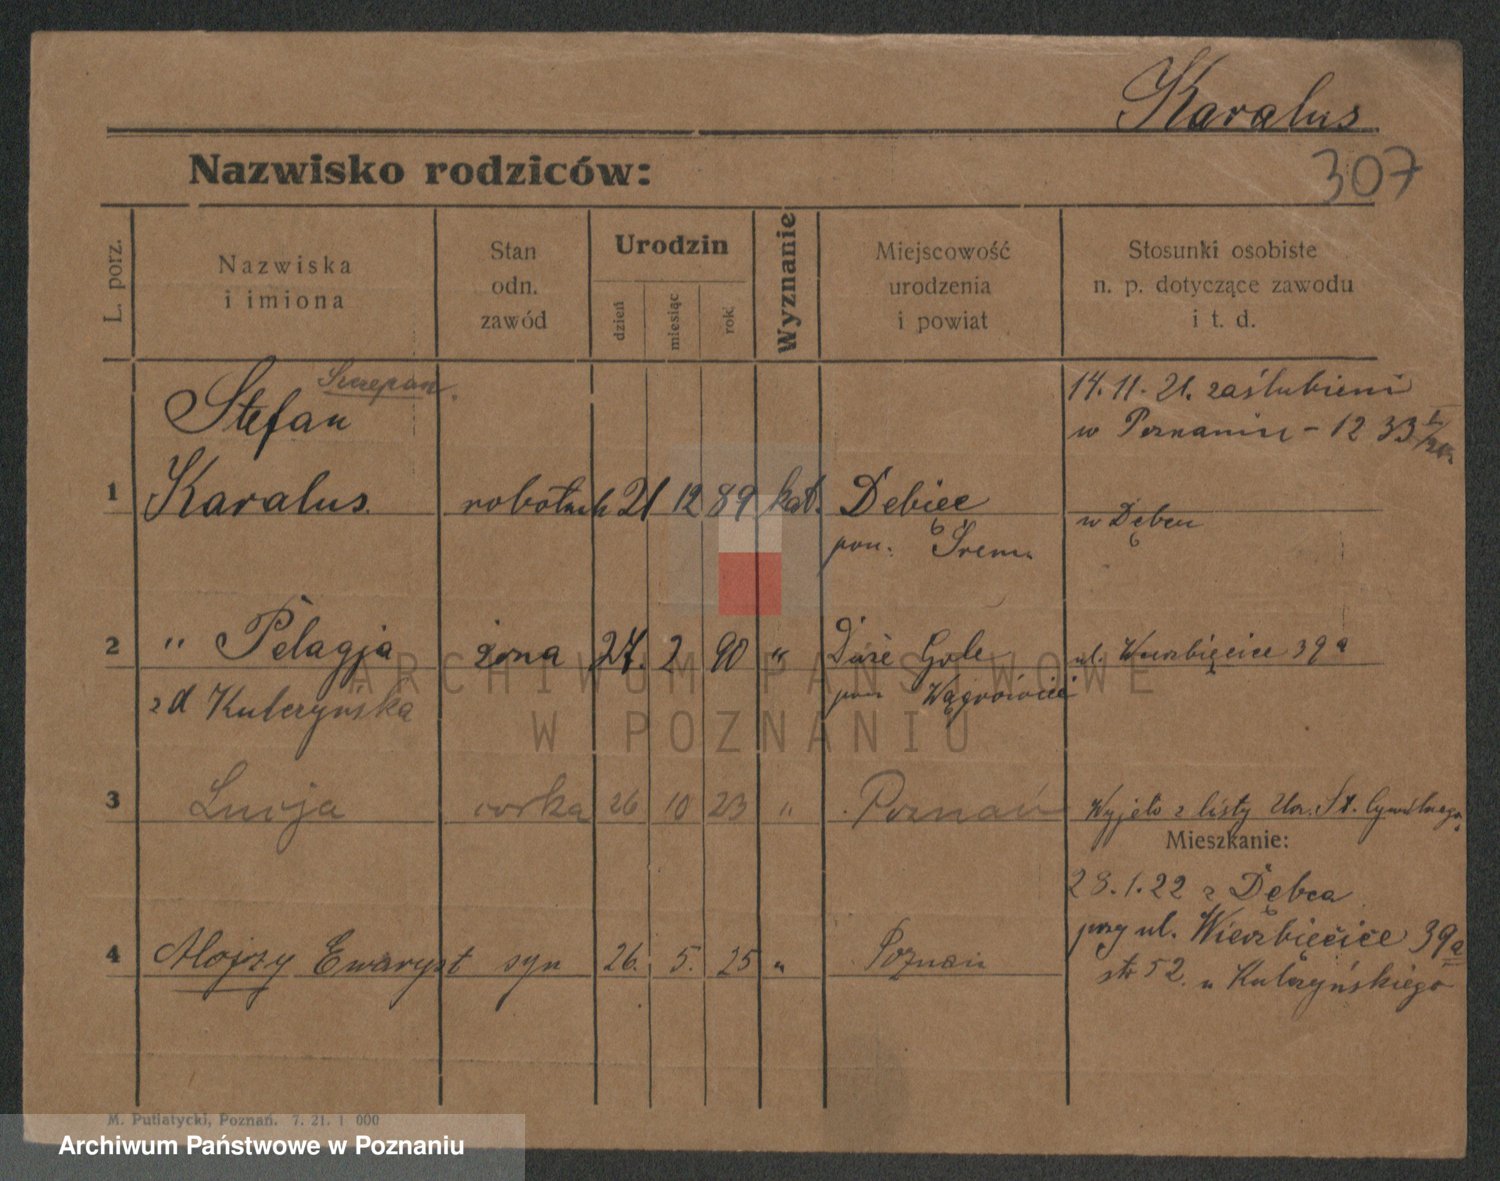 Karalus
307
Nazwisko rodziców:
L. porz.
Nazwiska
i imiona
Stan
odn.
zawód
Urodzin
dzień
miesiąc
rok
Wyznanie
Miejscowość
urodzenia
i powiat
Stosunki osobiste
n. p. dotyczące zawodu
i t. d.
Szczepan.
Stefan
14.11.21. zaślubieni
w Poznaniu - 12 33
1 Karalus. robotnik 21 12 89 kat. Dębiec
pow. Śrem.
w Dębcu
2 " Pelagja żona 27. 2 90 " Duże Gole ul. Wierzbięcice 39a
zd Kulczyńska pow
3 Lucja córka 26 10 23 " Poznań Wyjęto z listy Urz. St. Cywilnego
Mieszkanie:
28.1.22 z Dębca
przy ul. Wierzbięcice 39a
4 Alojzy Ewaryst syn 26. 5. 25 " Poznań
str 52. u Kulczyńskiego
M. Putiatycki, Poznań. 7. 21. 1 000
ARCHIWUM PAŃSTWOWE
W POZNANIU
Archiwum Państwowe w Poznaniu